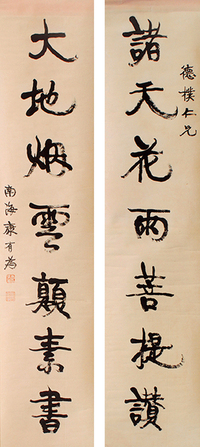 德樸仁兄
諸天花雨菩提讚
大地烟雲顛素書
南海康有為